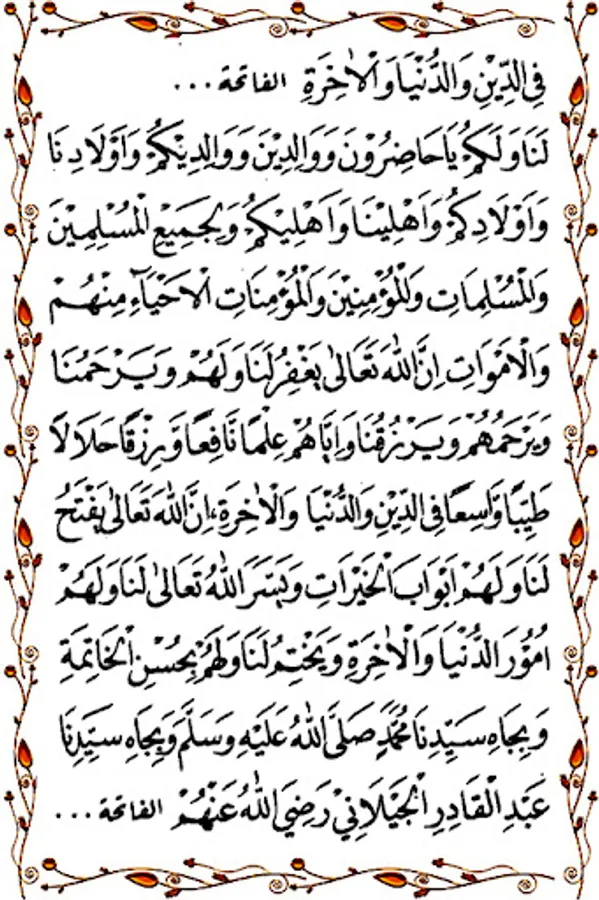 فِي الدِّيْنِ وَالدُّنْيَا وَالْاٰخِرَةِ الفاتحة ...
لَنَا وَلَكُمْ يَاحَاضِرُوْنَ وَوَالِدِيْنَ وَوَالِدِيْكُمْ وَاَوْلَادِنَا
وَاَوْلَادِكُمْ وَاَهْلِيْنَا وَاَهْلِيْكُمْ وَلِجَمِيْعِ الْمُسْلِمِيْنَ
وَالْمُسْلِمَاتِ وَالْمُؤْمِنِيْنَ وَالْمُؤْمِنَاتِ الْاَحْيَآءِ مِنْهُمْ
وَالْاَمْوَاتِ اِنَّ اللهَ تَعَالىٰ يَغْفِرُ لَنَا وَلَهُمْ وَيَرْحَمُنَا
وَيَرْحَمُهُمْ وَيَرْزُقُنَا وَاِيَّاهُمْ عِلْمًا نَافِعًا وَّرِزْقًا حَلَالًا
طَيِّبًا وَّاسِعًا فِي الدِّيْنِ وَالدُّنْيَا وَالْاٰخِرَةِ، اِنَّ اللهَ تَعَالىٰ يَفْتَحُ
لَنَا وَلَهُمْ اَبْوَابَ الْخَيْرَاتِ وَيَسَّرَ اللهُ تَعَالىٰ لَنَا وَلَهُمْ
اُمُوْرَ الدُّنْيَا وَالْاٰخِرَةِ وَيَخْتِمُ لَنَا وَلَهُمْ بِحُسْنِ الْخَاتِمَةِ
وَبِجَاهِ سَيِّدِنَا مُحَمَّدٍ صَلَّى اللهُ عَلَيْهِ وَسَلَّمَ وَبِجَاهِ سَيِّدِنَا
عَبْدِ الْقَادِرِ الْجَيْلَانِيْ رَضِيَ اللهُ عَنْهُمْ الفاتحة ...